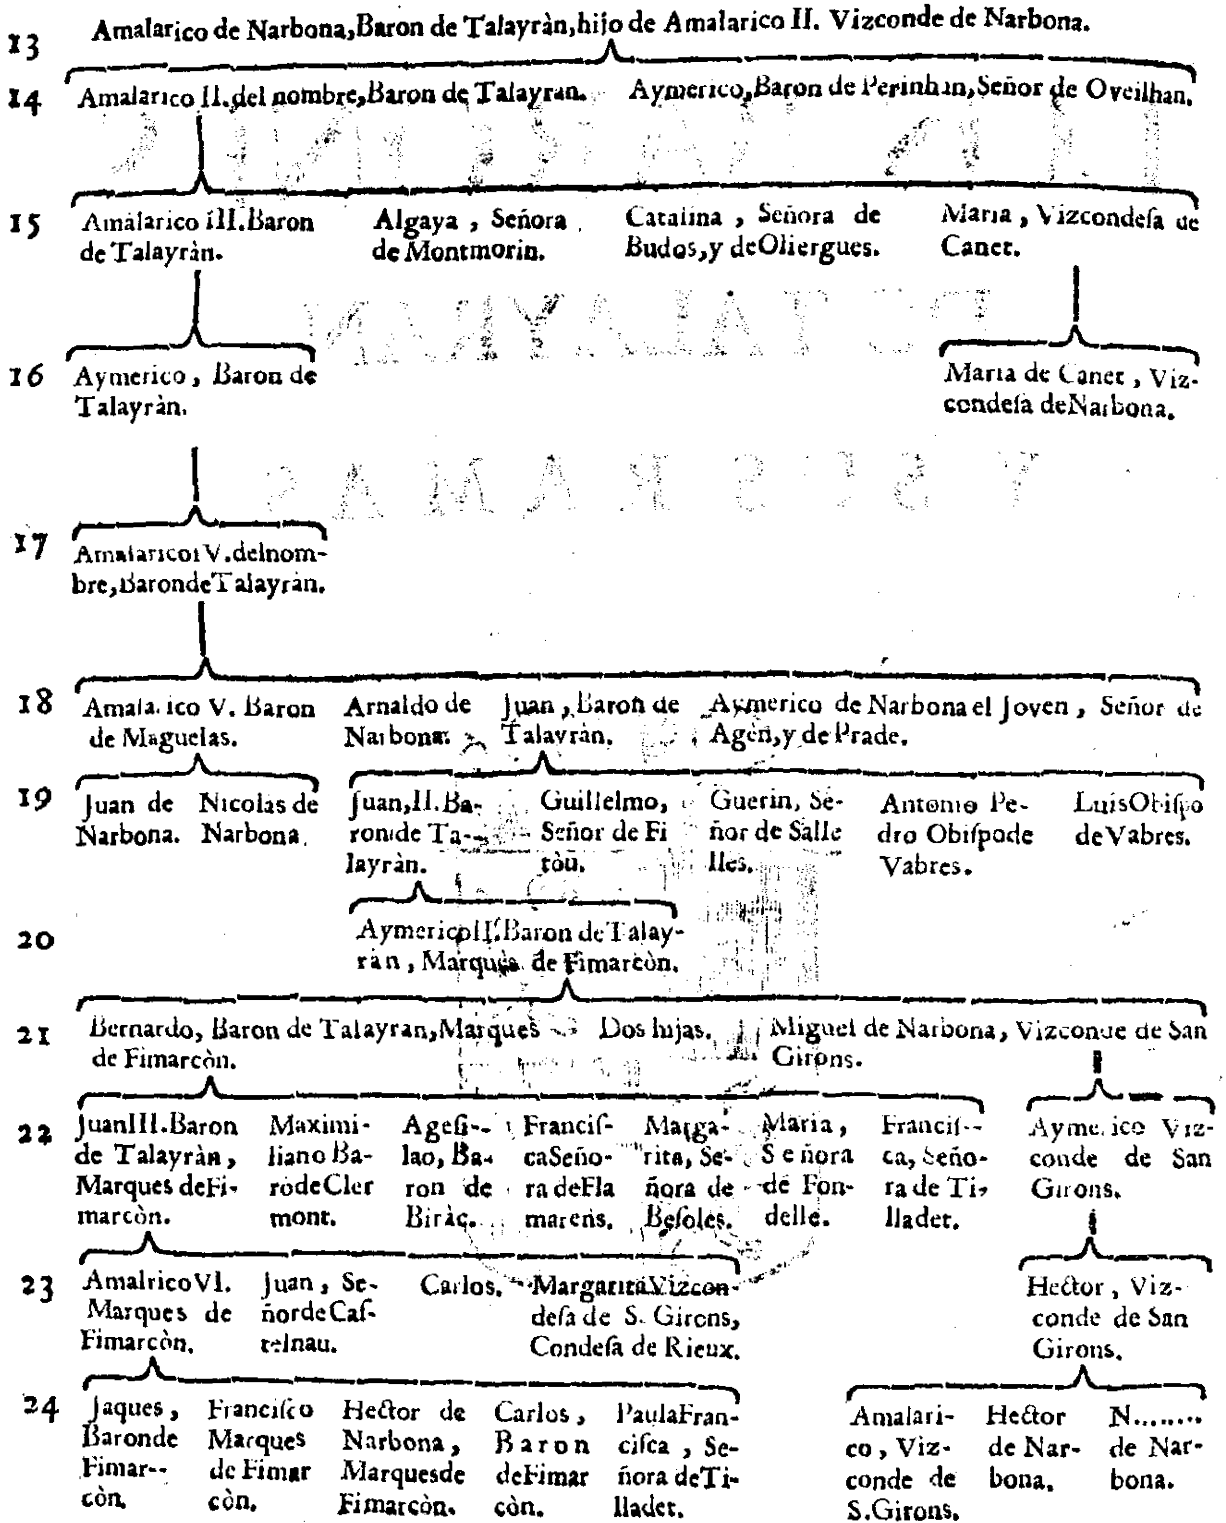 13 Amalarico de Narbona, Baron de Talayràn, hijo de Amalarico II. Vizconde de Narbona.
14 Amalarico II. del nombre, Baron de Talayran. Aymerico, Baron de Perinhan, Señor de Oveilhan.
15 Amalarico III. Baron
de Talayràn.
Algaya, Señora
de Montmorin.
Catalina, Señora de
Budos, y de Oliergues.
Maria, Vizcondesa de
Canet.
16 Aymerico, Baron de
Talayràn.
Maria de Canet, Viz-
condesa de Narbona.
17 Amalarico IV. del nom-
bre, Baron de Talayràn.
18 Amalarico V. Baron
de Maguelas.
Arnaldo de
Narbona.
Juan, Baron de
Talayràn.
Aymerico de Narbona el Joven, Señor de
Agen, y de Prade.
19 Juan de
Narbona.
Nicolas de
Narbona.
Juan, II. Ba-
ron de Ta-
layràn.
Guillelmo,
Señor de Fi
tòu.
Guerin, Se-
ñor de Salle
lles.
Antonio Pe-
dro Obispo de
Vabres.
Luis Obispo
de Vabres.
20 Aymerico II. Baron de Talay-
ràn, Marquès de Fimarcòn.
21 Bernardo, Baron de Talayran, Marques
de Fimarcòn.
Dos hijas.
Miguel de Narbona, Vizconde de San
Girons.
22 Juan III. Baron
de Talayràn,
Marques de Fi-
marcòn.
Maximi-
liano Ba-
rõ de Cler
mont.
Agesi--
lao, Ba-
ron de
Biràc.
Francis-
ca Seño-
ra de Fla
marens.
Marga-
rita, Se-
ñora de
Besoles.
Maria,
Señora
de Fon-
delle.
Francis--
ca, Seño-
ra de Ti-
lladet.
Aymerico Viz-
conde de San
Girons.
23 Amalrico VI.
Marques de
Fimarcòn.
Juan, Se-
ñor de Cas-
telnau.
Carlos.
Margarita Vizcon-
desa de S. Girons,
Condesa de Rieux.
Hector, Viz-
conde de San
Girons.
24 Jaques,
Baron de
Fimar--
còn.
Francisco
Marques
de Fimar
còn.
Hector de
Narbona,
Marques de
Fimarcòn.
Carlos,
Baron
de Fimar
còn.
Paula Fran-
cisca, Se-
ñora de Ti-
lladet.
Amalari-
co, Viz-
conde de
S. Girons.
Hector
de Nar-
bona.
N........
de Nar-
bona.